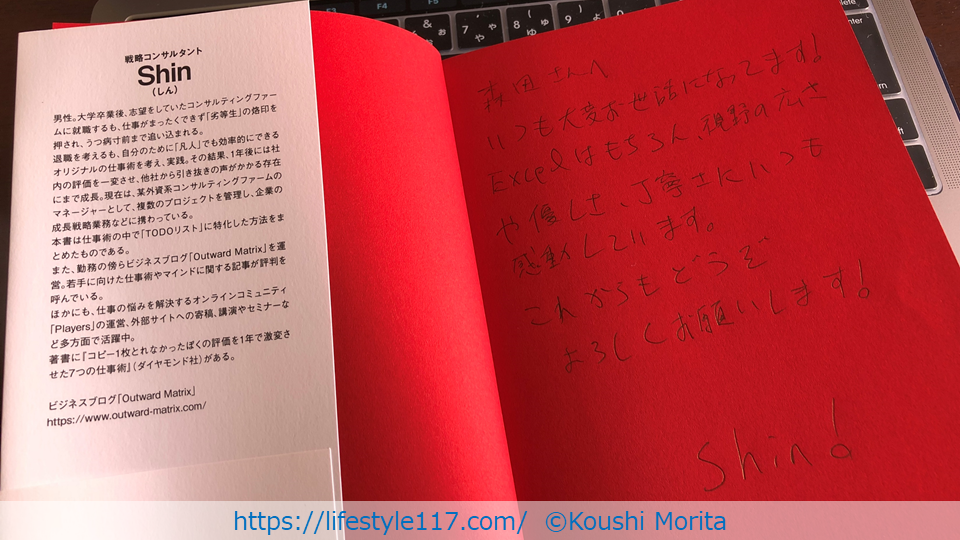 戦略コンサルタント
Shin
(しん)
男性。大学卒業後、志望をしていたコンサルティングファー
ムに就職するも、仕事がまったくできず「劣等生」の烙印を
押され、うつ病寸前まで追い込まれる。
退職を考えるも、自分のために「凡人」でも効率的にできる
オリジナルの仕事術を考え、実践。その結果、1年後には社
内の評価を一変させ、他社から引き抜きの声がかかる存在
にまで成長。現在は、某外資系コンサルティングファームの
マネージャーとして、複数のプロジェクトを管理し、企業の
成長戦略業務などに携わっている。
本書は仕事術の中で「TODOリスト」に特化した方法をま
とめたものである。
また、勤務の傍らビジネスブログ「Outward Matrix」を運
営。若手に向けた仕事術やマインドに関する記事が評判を
呼んでいる。
ほかにも、仕事の悩みを解決するオンラインコミュニティ
「Players」の運営、外部サイトへの寄稿、講演やセミナーな
ど多方面で活躍中。
著書に『コピー1枚とれなかったぼくの評価を1年で激変さ
せた7つの仕事術』(ダイヤモンド社)がある。
ビジネスブログ「Outward Matrix」
https://www.outward-matrix.com/
森田さんへ
いつも大変お世話になってます!
Excelはもちろん、視野の広さ
や優しさ、丁寧さにいつも
感動しています。
これからもどうぞ
よろしくお願いします!
Shin!
https://lifestyle117.com/ ©Koushi Morita